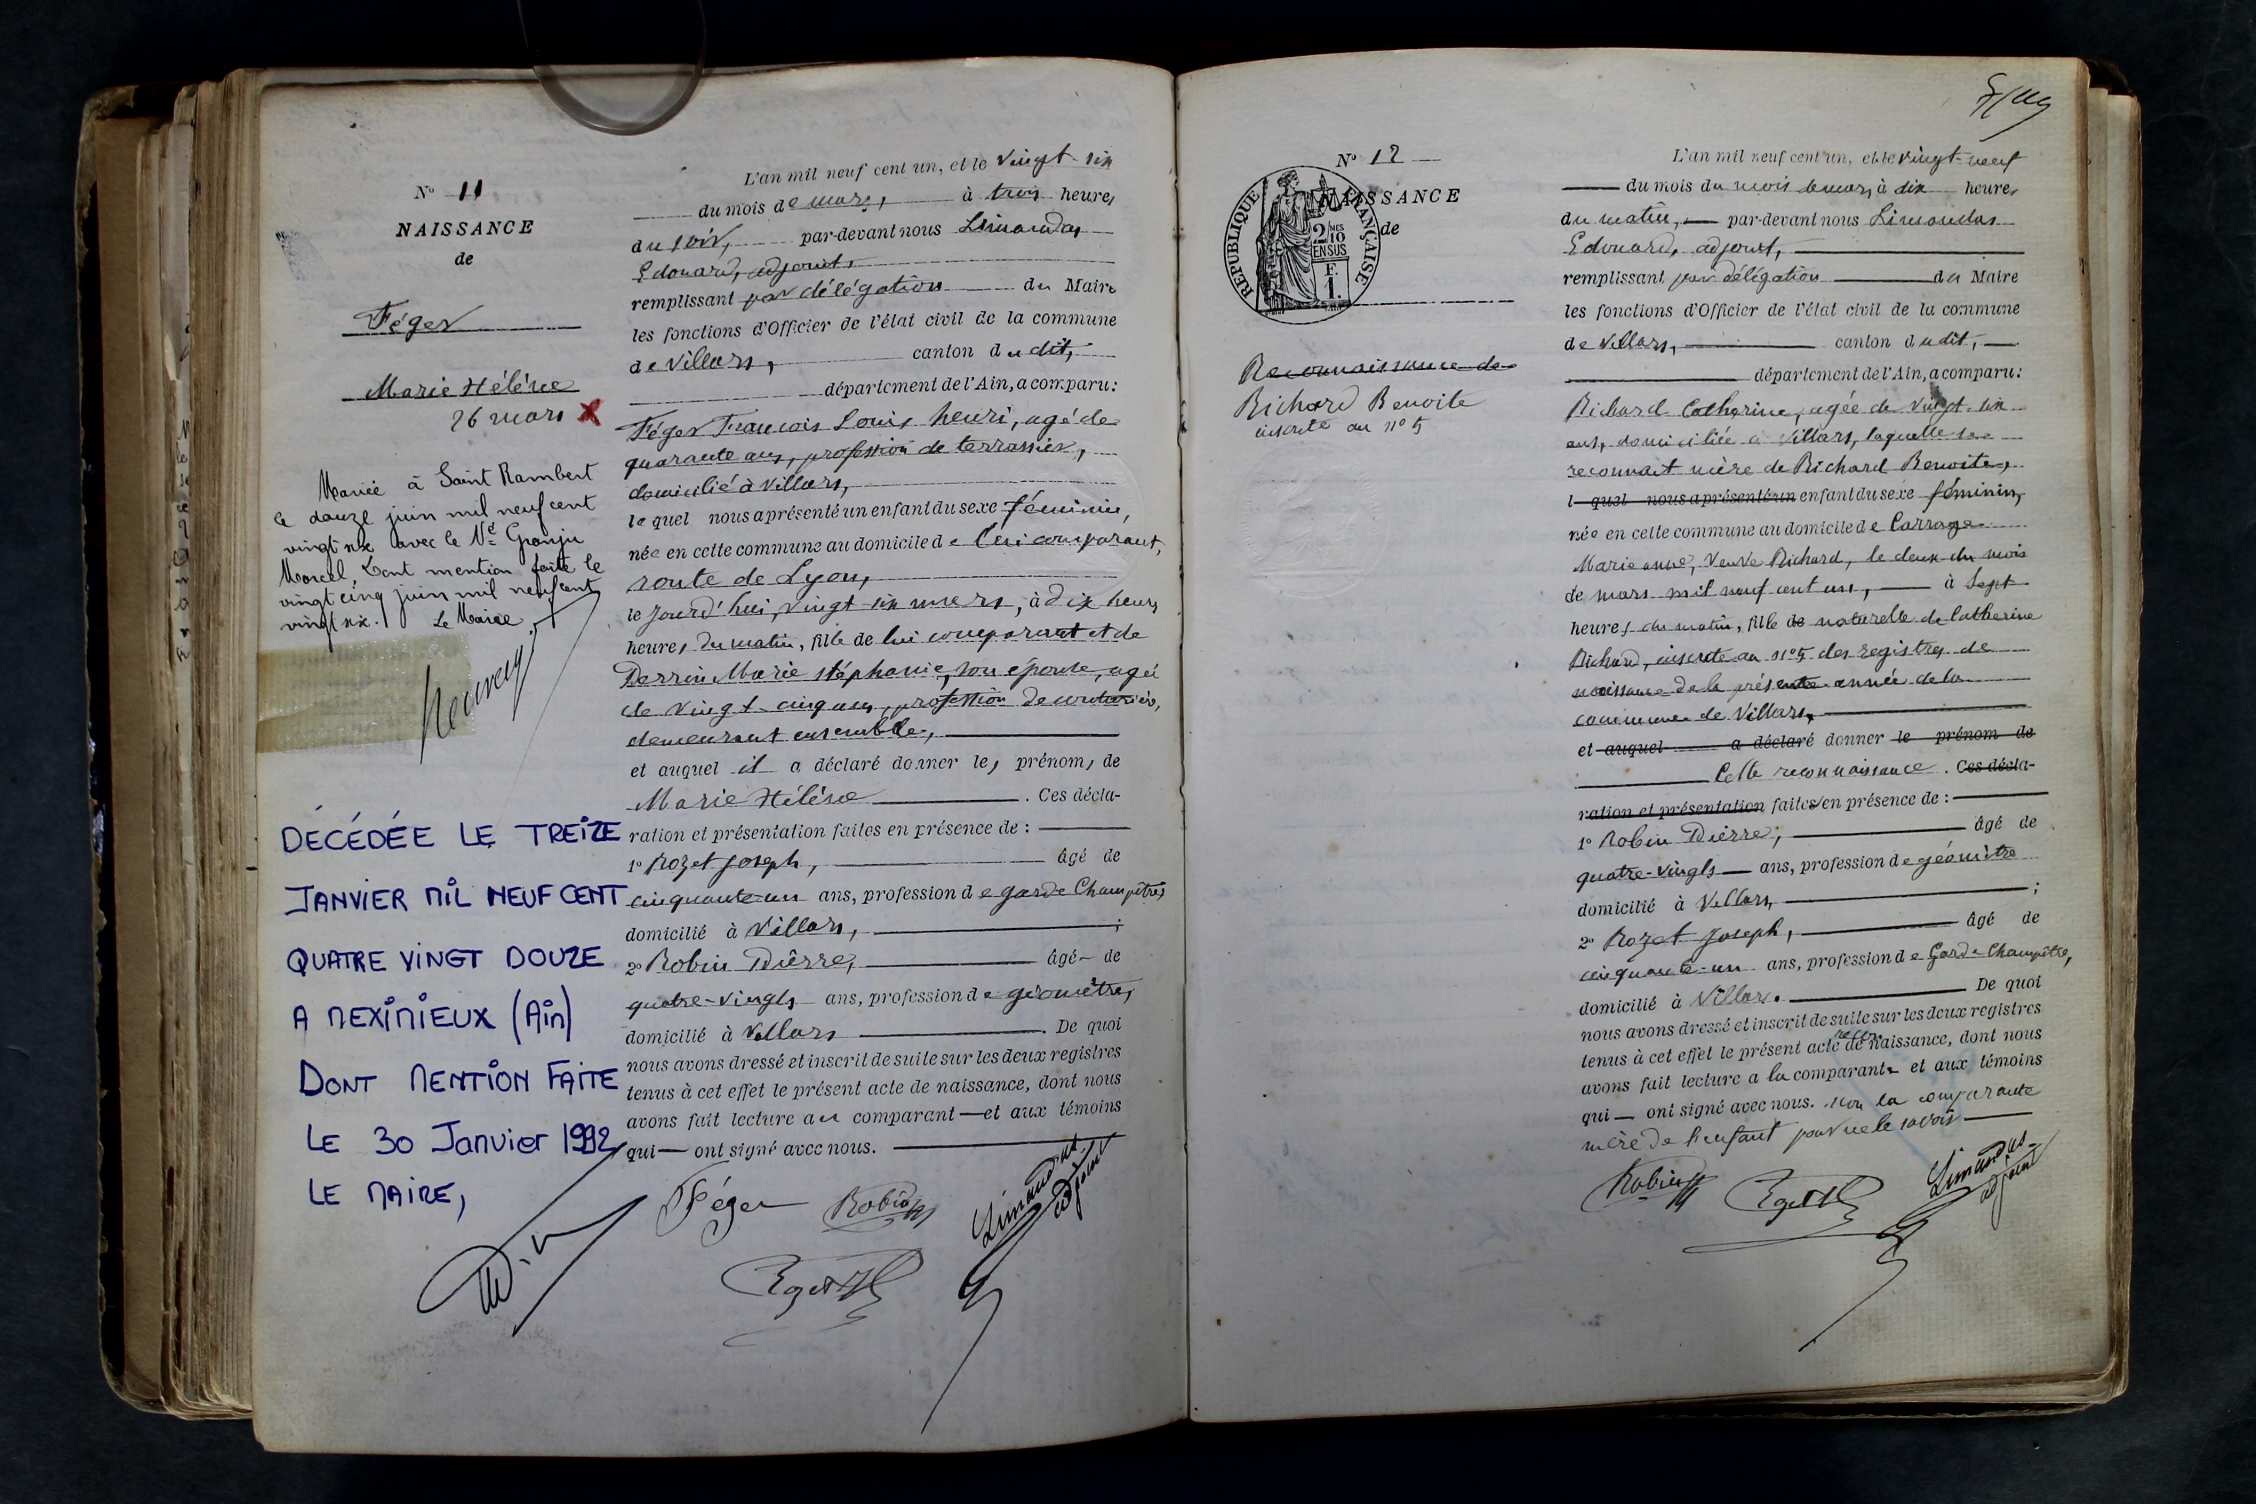 N° 11
NAISSANCE
de
Féger
Marie Hélène
26 mars
Mariée à Saint Rambert
le douze juin mil neuf cent
vingt six avec le Né Granju
Marcel. Dont mention faite le
vingt cinq juin mil neuf cent
vingt six. Le Maire
DÉCÉDÉE LE TREIZE
JANVIER MIL NEUF CENT
QUATRE VINGT DOUZE
A MEXIMIEUX (Ain)
DONT MENTION FAITE
LE 30 Janvier 1992
LE MAIRE,
L'an mil neuf cent un, et le vingt-six
du mois de mars, à trois heures
du soir, par-devant nous Limandas
Edouard, adjoint,
remplissant par délégation du Maire
les fonctions d'Officier de l'état civil de la commune
de Villars, canton du dit,
département de l'Ain, a comparu:
Féger François Louis Henri, agé de
quarante ans, profession de terrassier,
domicilié à Villars,
lequel nous a présenté un enfant du sexe féminin,
née en cette commune au domicile de lui comparant,
route de Lyon,
le jourd'hui, vingt-six mars, à dix heures
heures du matin, fille de lui comparant et de
Perrin Marie Stéphanie, son épouse, agée
de vingt-cinq ans, profession de couturière,
demeurant ensemble,
et auquel il a déclaré donner les prénoms de
Marie Hélène. Ces décla-
ration et présentation faites en présence de :
1° Rozet Joseph, âgé de
cinquante-un ans, profession de garde Champêtre,
domicilié à Villars, ;
2° Robin Pierre, âgé de
quatre-vingts ans, profession de géomètre,
domicilié à Villars. De quoi
nous avons dressé et inscrit de suite sur les deux registres
tenus à cet effet le présent acte de naissance, dont nous
avons fait lecture au comparant et aux témoins
qui ont signé avec nous.
Féger Robin Limandas
adjoint
N° 12
NAISSANCE
de
RÉPUBLIQUE FRANÇAISE
2 MES
10
EN SUS
F.
1.
Reconnaissance de
Richard Benoite
inscrite au n° 5
L'an mil neuf cent un, et le vingt-neuf
du mois du mois de mars, à dix heures
du matin, par-devant nous Limandas
Edouard, adjoint,
remplissant par délégation du Maire
les fonctions d'Officier de l'état civil de la commune
de Villars, canton du dit,
département de l'Ain, a comparu:
Richard Catherine, agée de vingt-six
ans, domiciliée à Villars, laquelle se
reconnait mère de Richard Benoite,
l quel nous a présenté un enfant du sexe féminin,
née en cette commune au domicile de Carrage
Marie anne, Veuve Richard, le deux du mois
de mars mil neuf cent un, à sept
heures du matin, fille de naturelle de Catherine
Richard, inscrite au n° 5 des registres de
naissance de la présente année de la
commune de Villars,
et auquel a déclaré donner le prénom de
Cette reconnaissance. Ces décla-
ration et présentation faites en présence de :
1° Robin Pierre, âgé de
quatre-vingts ans, profession de géomètre
domicilié à Villars, ;
2° Rozet Joseph, âgé de
cinquante-un ans, profession de Garde Champêtre,
domicilié à Villars. De quoi
nous avons dressé et inscrit de suite sur les deux registres
tenus à cet effet le présent acte de naissance, dont nous
avons fait lecture a la comparante et aux témoins
qui ont signé avec nous. non la comparante
mère de l'enfant pour ne le savoir
Robin Limandas
adjoint